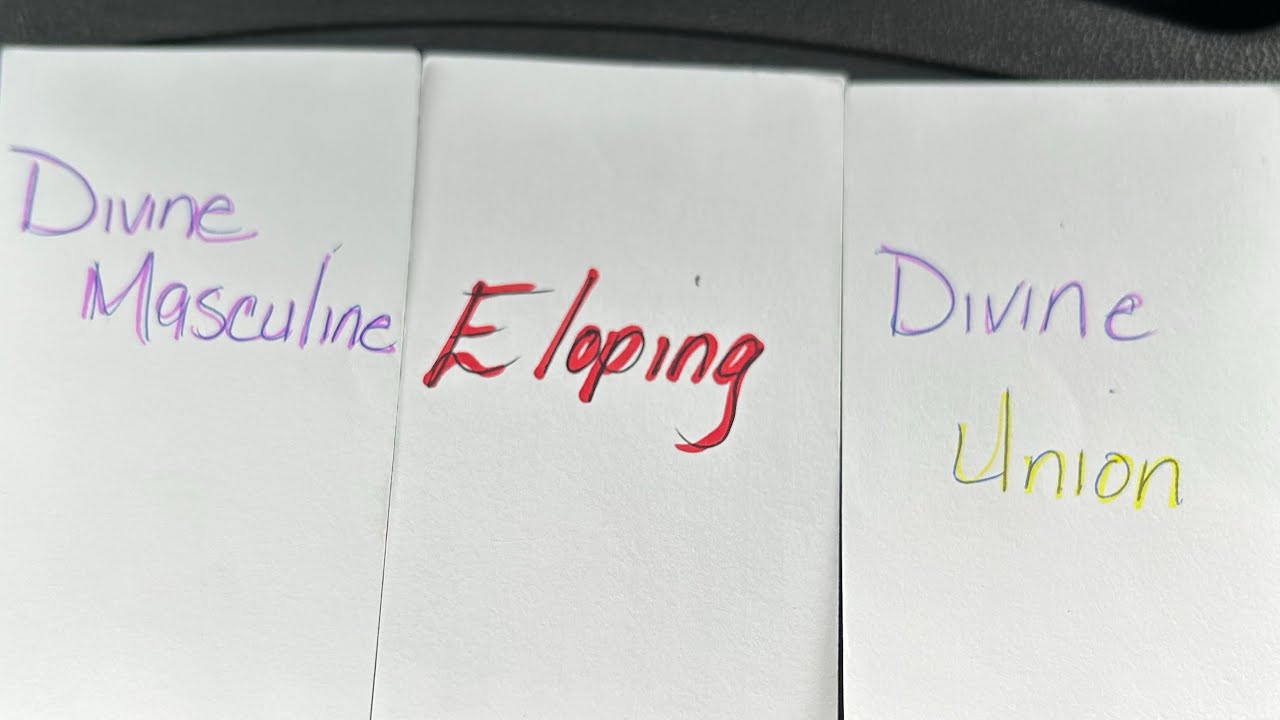 Divine
Masculine
Eloping
Divine
Union